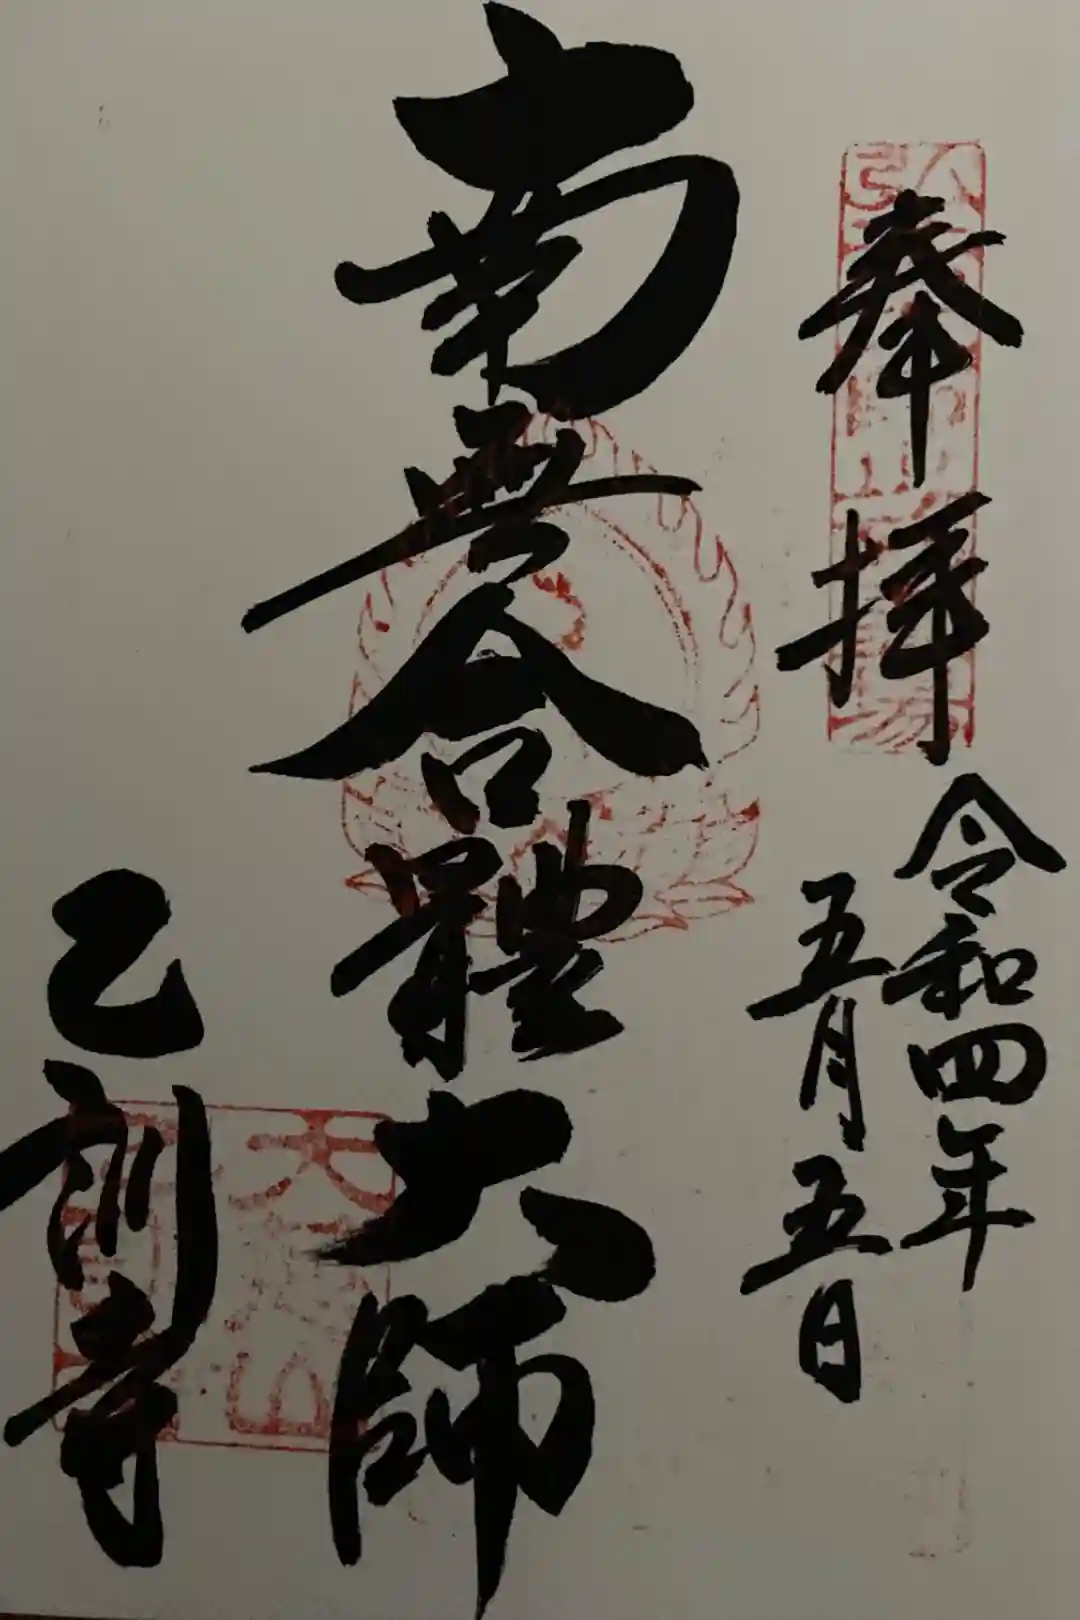 奉拝
令和四年
五月五日
南無合體大師
乙訓寺